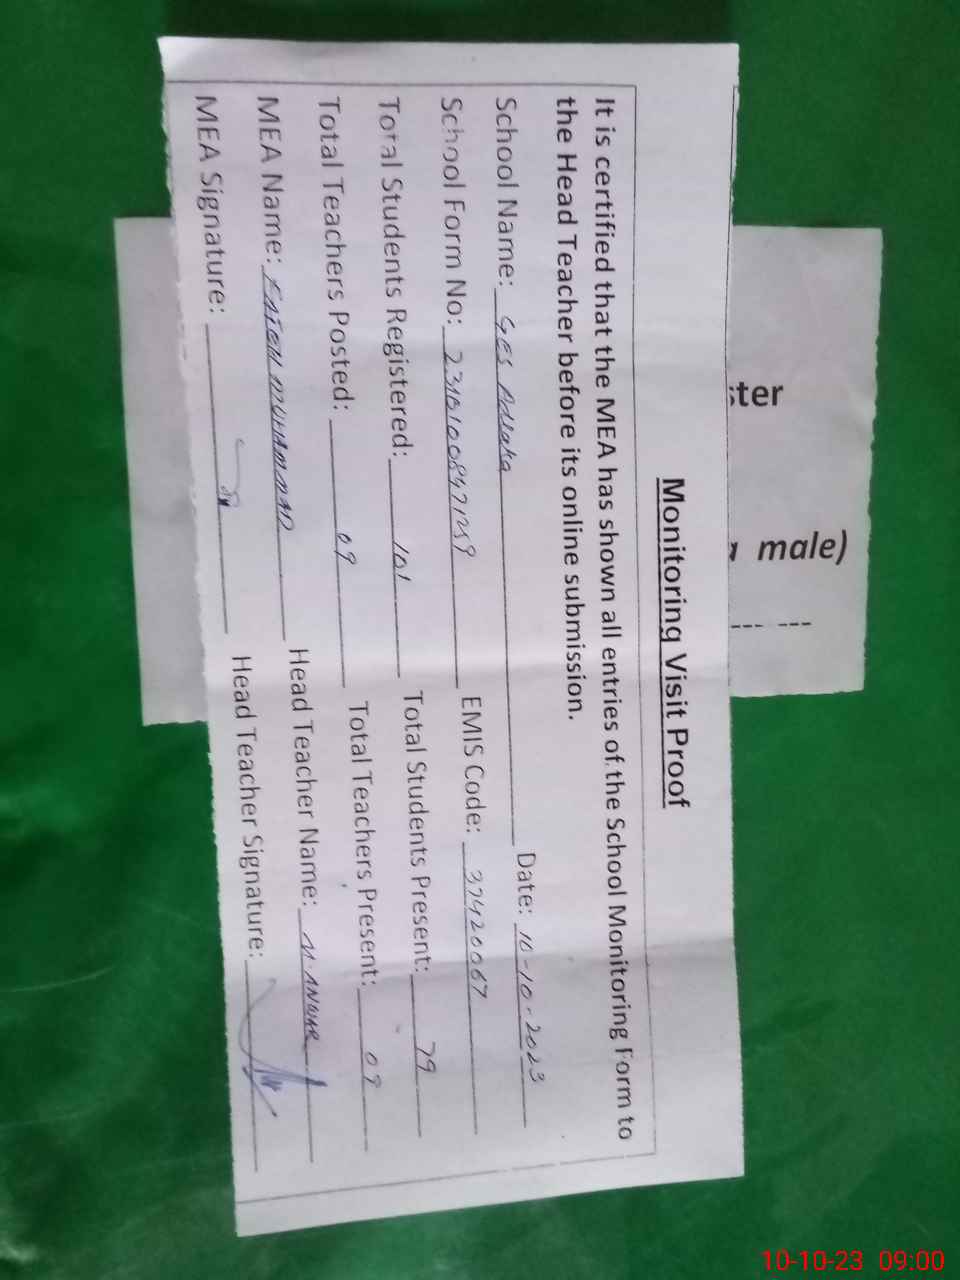 Monitoring Visit Proof
It is certified that the MEA has shown all entries of the School Monitoring Form to
the Head Teacher before its online submission.
School Name: GES Adlaka Date: 10-10-2023
School Form No: EMIS Code: 37420067
Total Students Registered: 101 Total Students Present: 79
Total Teachers Posted: 09 Total Teachers Present: 09
MEA Name: MUHAMMAD Head Teacher Name: M. ANWAR
MEA Signature: Head Teacher Signature:
ter
male)
10-10-23 09:00